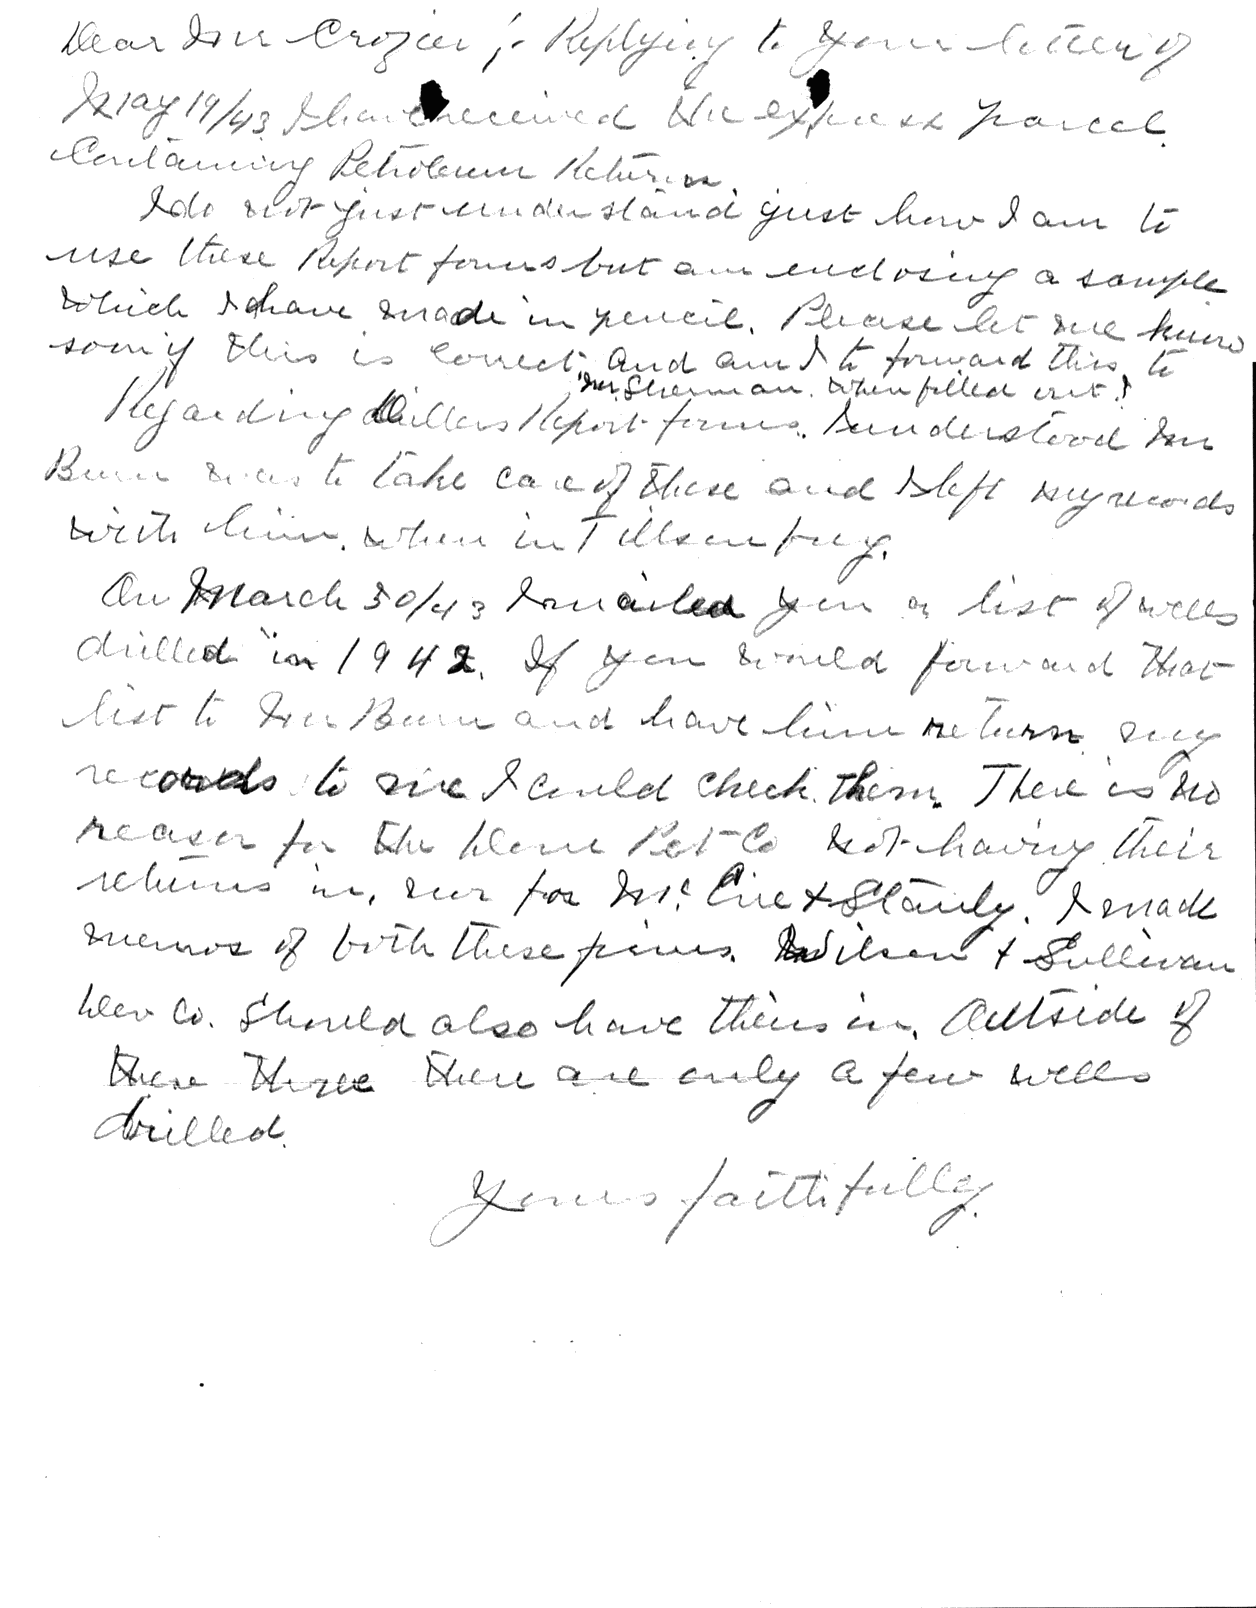 Dear Mr Crozier ;- Replying to your letter of
May 19/43 I have received the express parcel
Containing Petroleum Returns.
I do not just understand just how I am to
use these Report forms but am enclosing a sample
which I have made in pencil. Please let me know
soon if this is correct and am I to forward this to
Mr. Sherman when filled out.?
Regarding Drillers Report forms. I understood Mr
was to take care of these and I left my records
with him. when in Tillsonburg.
On March 30/43 I mailed you a list of wells
drilled in 1942. If you would forward that
list to Mr and have him return my
records to me I could check them. There is no
reason for the Dome Pet Co not having their
returns in, nor for Mc & Stanly. I made
memos of both these firms. Wilson & Sullivan
Dev Co. Should also have theirs in. Outside of
these three there are only a few wells
drilled.
Yours faithfully.